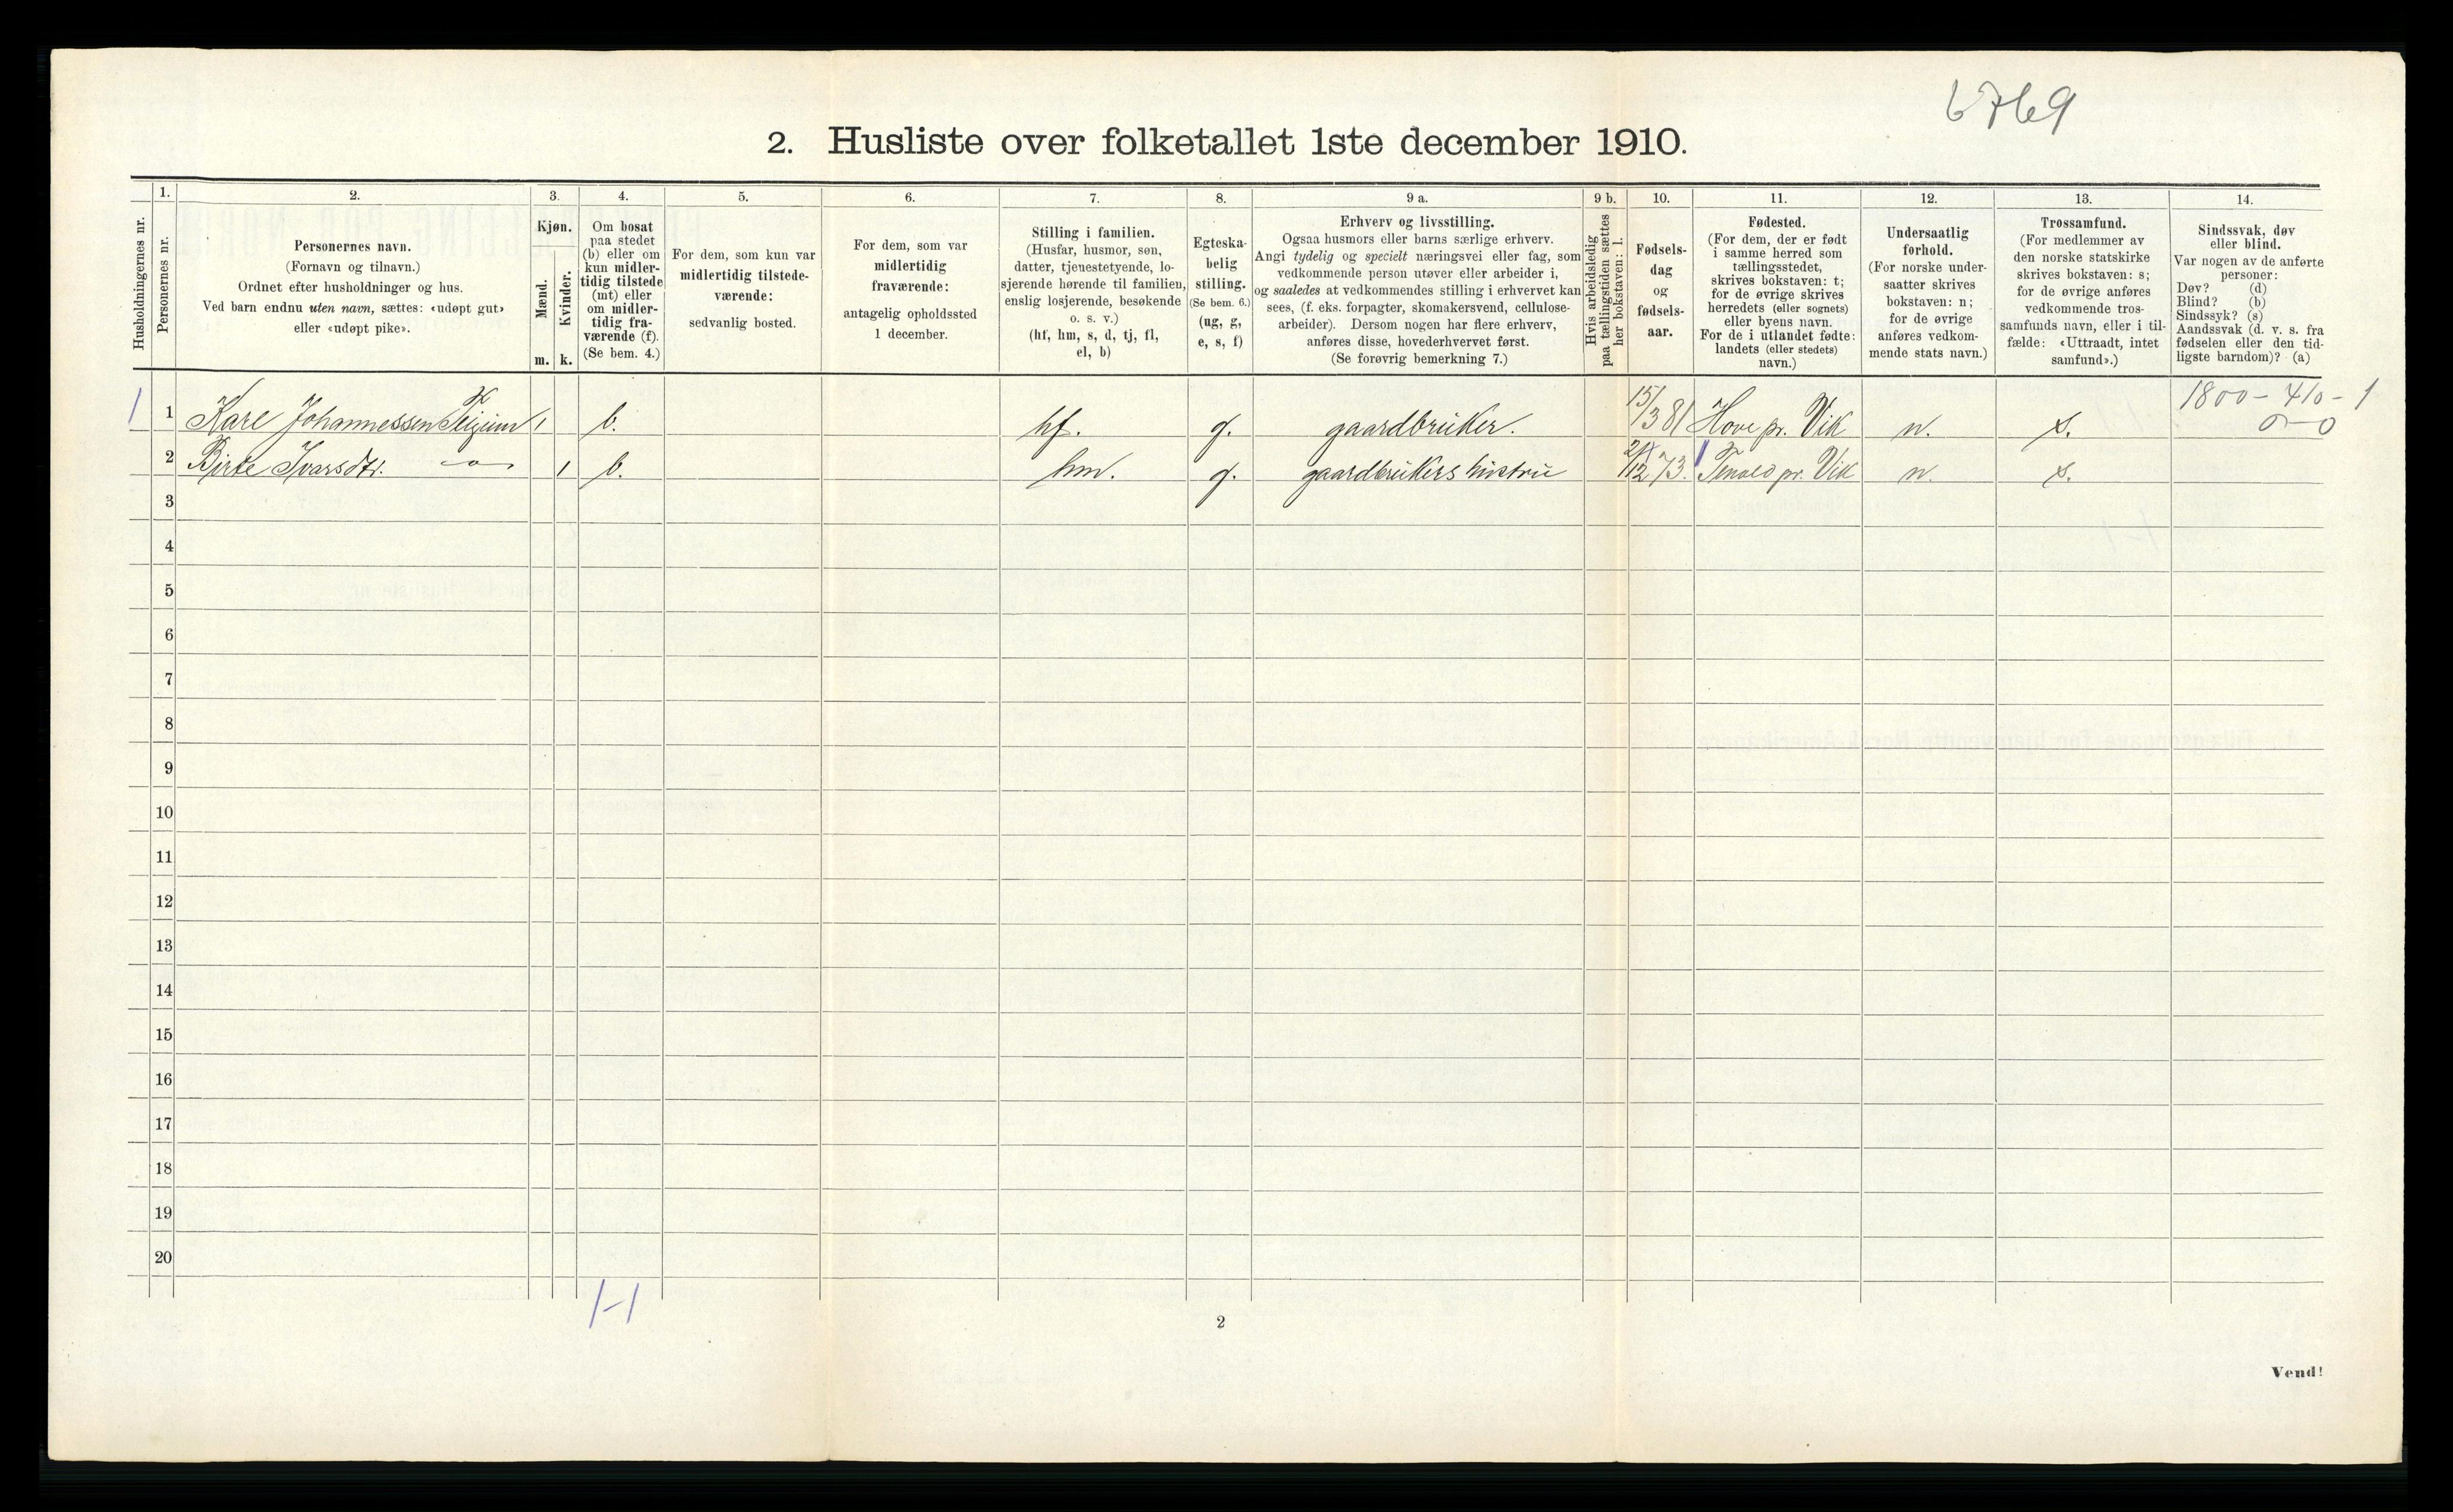 6769
2. Husliste over folketallet 1ste december 1910.
Husholdningernes nr.
1.
Personernes nr.
2.
Personernes navn.
(Fornavn og tilnavn.)
Ordnet efter husholdninger og hus.
Ved barn endnu uten navn, sættes: «udøpt gut»
eller «udøpt pike».
3.
Kjøn.
Mænd.
Kvinder.
m. k.
4.
Om bosat
paa stedet
(b) eller om
kun midler-
tidig tilstede
(mt) eller
om midler-
tidig fra-
værende (f).
(Se bem. 4.)
5.
For dem, som kun var
midlertidig tilstede-
værende:
sedvanlig bosted.
6.
For dem, som var
midlertidig
fraværende:
antagelig opholdssted
1 december.
7.
Stilling i familien.
(Husfar, husmor, søn,
datter, tjenestetyende, lo-
sjerende hørende til familien,
enslig losjerende, besøkende
o. s. v.)
(hf, hm, s, d, tj, fl,
el, b)
8.
Egteska-
belig
stilling.
(Se bem. 6.)
(ug, g,
e, s, f)
9 a.
Erhverv og livsstilling.
Ogsaa husmors eller barns særlige erhverv.
Angi tydelig og specielt næringsvei eller fag, som
vedkommende person utøver eller arbeider i,
og saaledes at vedkommendes stilling i erhvervet kan
sees, (f. eks. forpagter, skomakersvend, cellulose-
arbeider). Dersom nogen har flere erhverv,
anføres disse, hovederhvervet først.
(Se forøvrig bemerkning 7.)
9 b.
Hvis arbeidsledig
paa tællingstiden sættes
her bokstaven: l.
10.
Fødsels-
dag
og
fødsels-
aar.
11.
Fødested.
(For dem, der er født
i samme herred som
tællingsstedet,
skrives bokstaven: t;
for de øvrige skrives
herredets (eller sognets)
eller byens navn.
For de i utlandet fødte:
landets (eller stedets)
navn.)
12.
Undersaatlig
forhold.
(For norske under-
saatter skrives
bokstaven: n;
for de øvrige
anføres vedkom-
mende stats navn.)
13.
Trossamfund.
(For medlemmer av
den norske statskirke
skrives bokstaven: s;
for de øvrige anføres
vedkommende tros-
samfunds navn, eller i til-
fælde: «Uttraadt, intet
samfund».)
14.
Sindssvak, døv
eller blind.
Var nogen av de anførte
personer:
Døv? (d)
Blind? (b)
Sindssyk? (s)
Aandssvak (d. v. s. fra
fødselen eller den tid-
ligste barndom)? (a)
1800 - 410 - 1
0 - 0
1 1 Karl Johannessen 1 b. hf. g. gaardbruker. 15/3 81 Hove pr. Vik n. s.
2 Birte Ivarsdtr. —"— 1 b. hm. g. gaardbrukers hustru /12 73. pr. Vik n. s.
3
4
5
6
7
8
9
10
11
12
13
14
15
16
17
18
19
20
1-1
2
Vend!